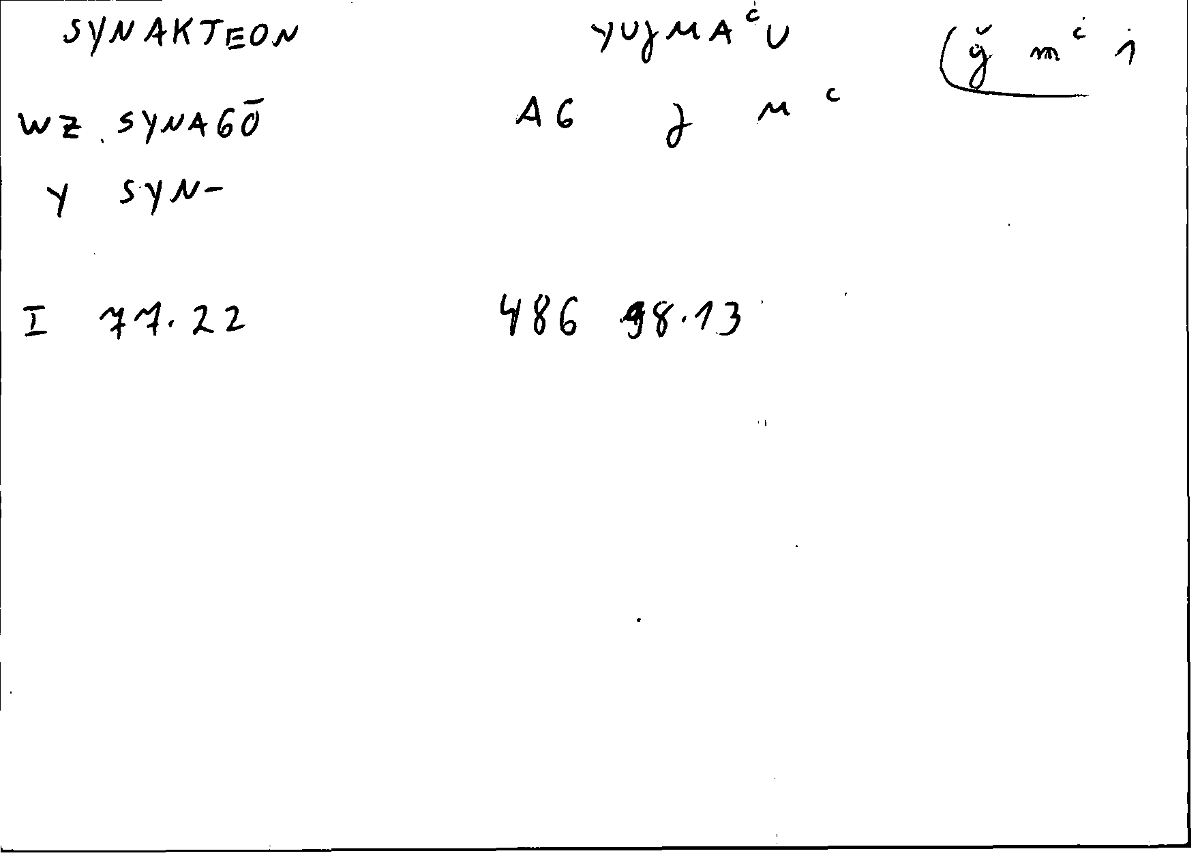 SYNAKTEON YUJMAʿU (ǧ mʿ i
WZ. SYNAGŌ AG J M ʿ
Y SYN-
I 77.22 486 98.13